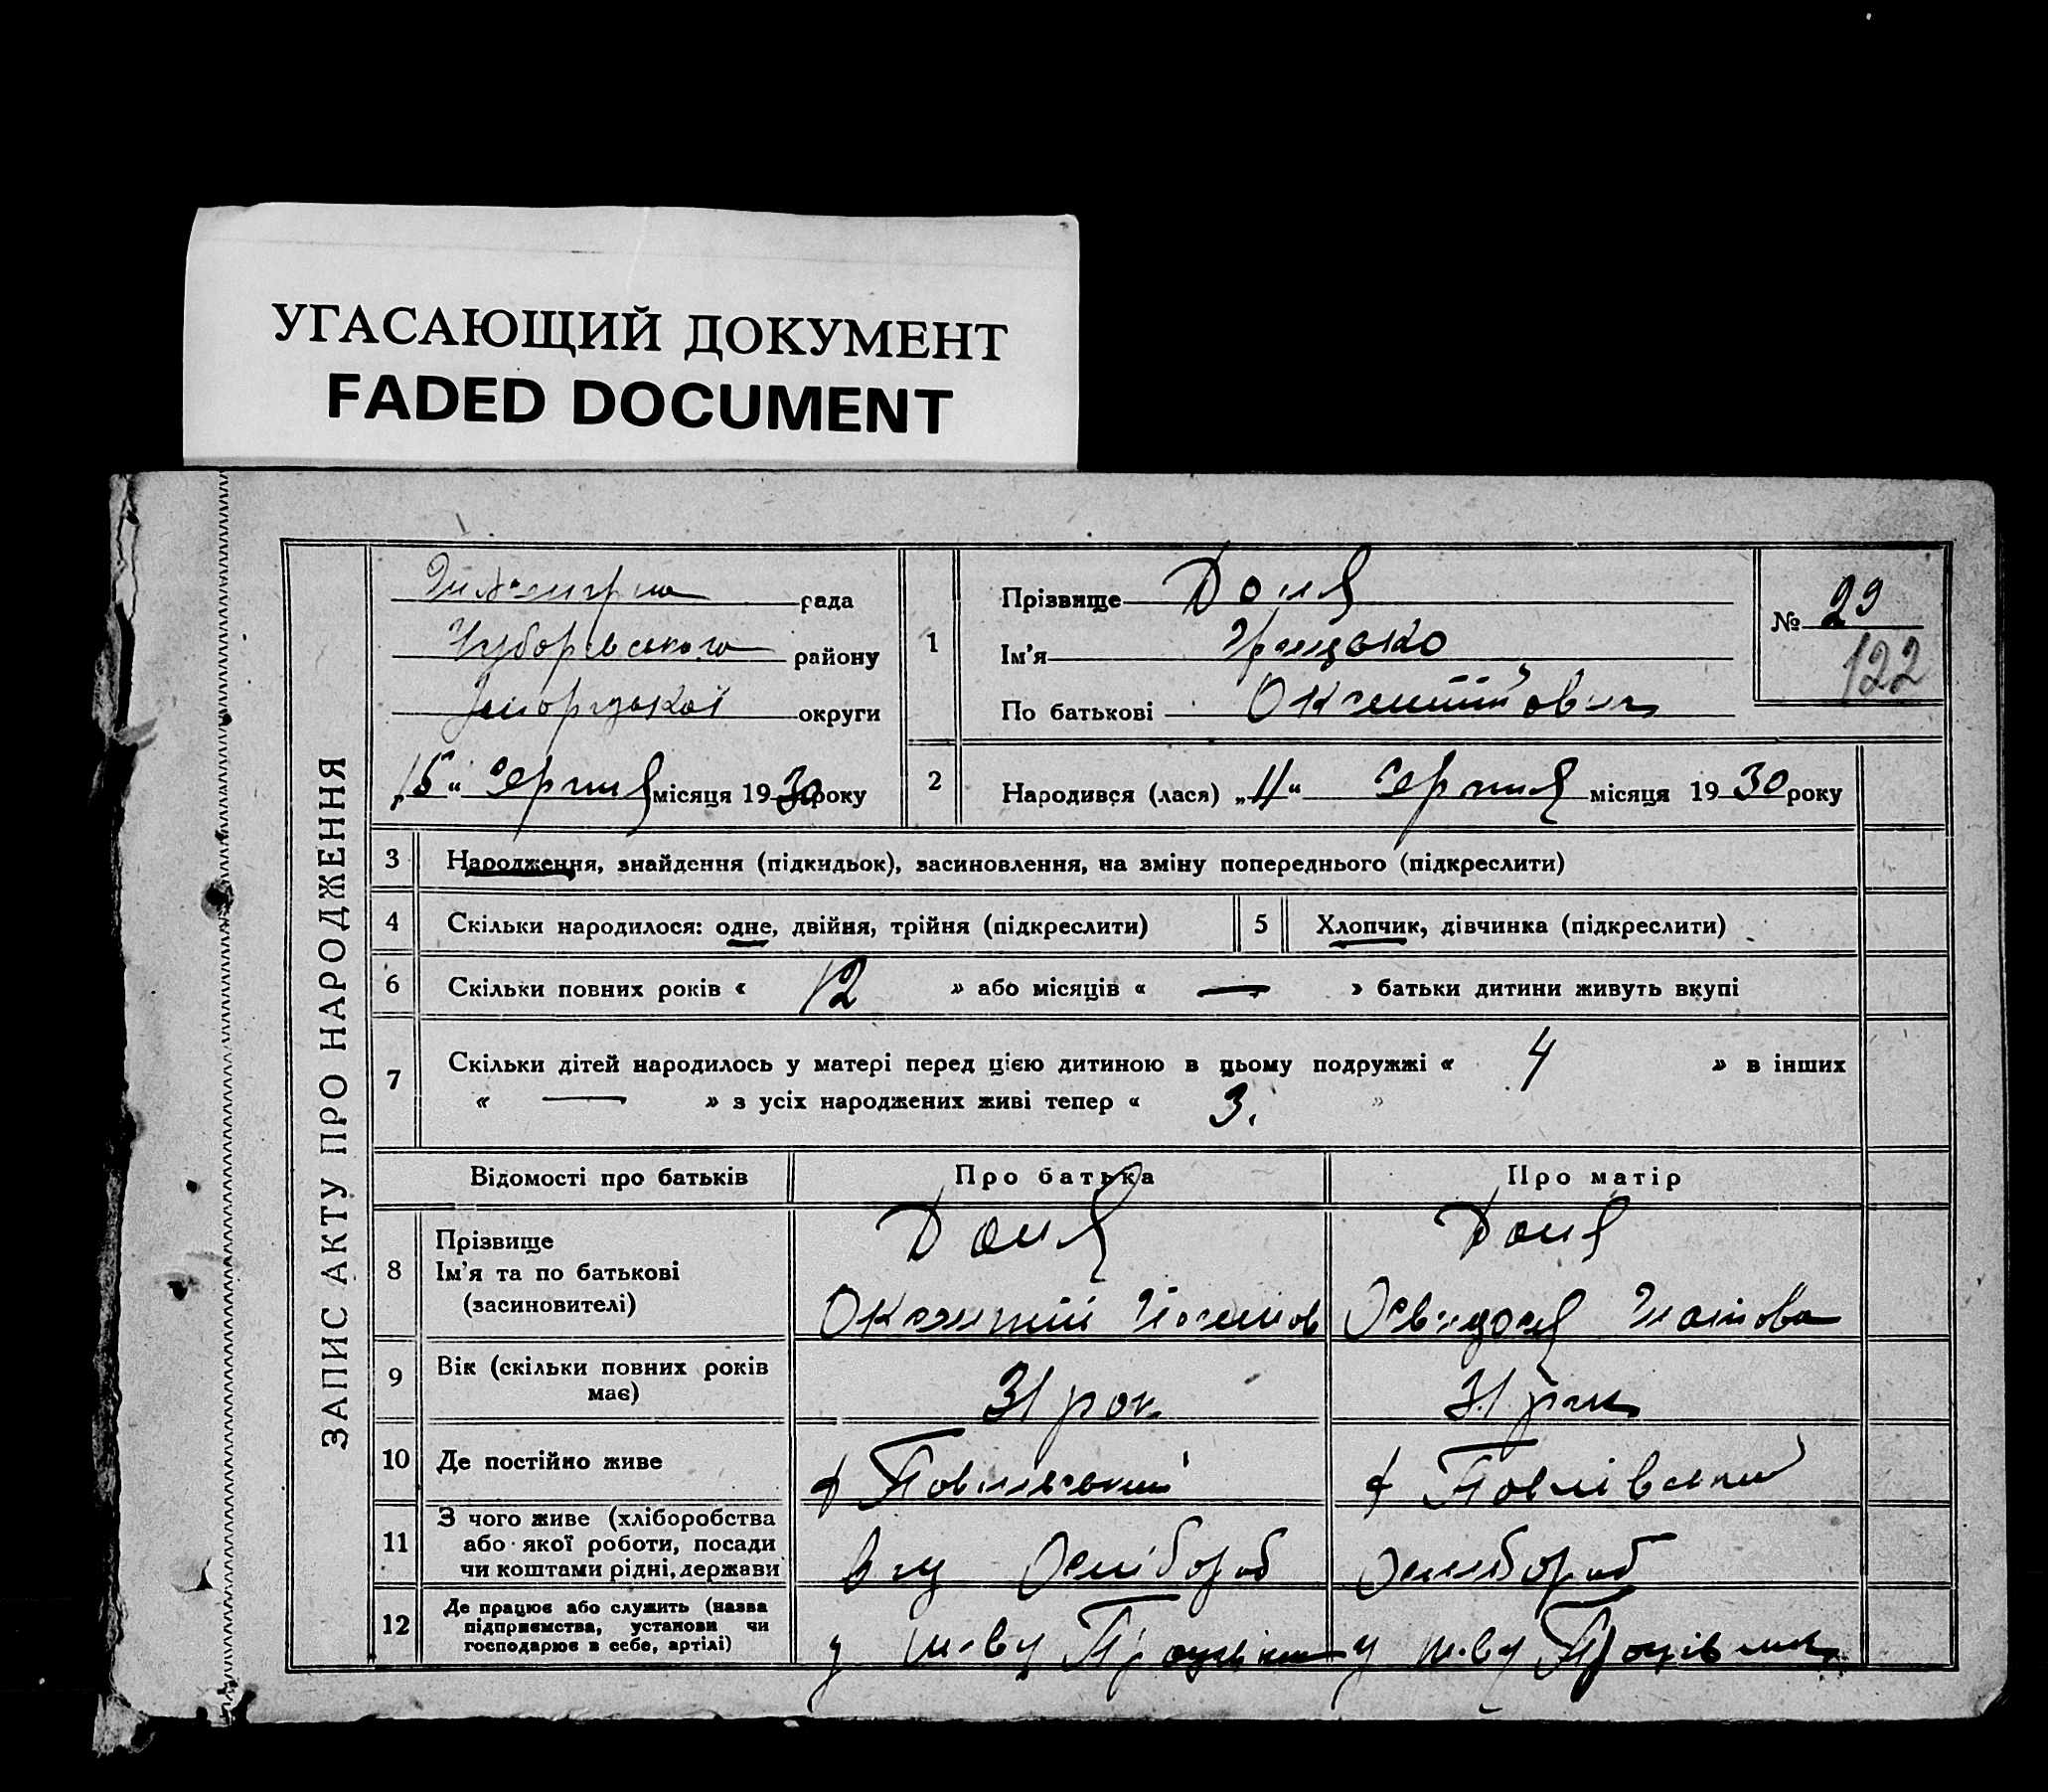 УГАСАЮЩИЙ ДОКУМЕНТ
FADED DOCUMENT
ЗАПИС АКТУ ПРО НАРОДЖЕННЯ
рада
району
округи
„15“ Серпня місяця 1930 року
1
Прізвище Доля
Ім'я Грицько
По батькові
№ 29
122
2
Народився (лася) „11“ Серпня місяця 1930 року
3 Народження, знайдення (підкидьок), засиновлення, на зміну попереднього (підкреслити)
4 Скільки народилося: одне, двійня, трійня (підкреслити)
5 Хлопчик, дівчинка (підкреслити)
6 Скільки повних років « 12 » або місяців « — » батьки дитини живуть вкупі
7 Скільки дітей народилось у матері перед цією дитиною в цьому подружжі « 4 » в інших
« — » з усіх народжених живі тепер « 3. »
Відомості про батьків Про батька Про матір
8 Прізвище
Ім'я та по батькові
(засиновителі)
Доля
Доля
9 Вік (скільки повних років
має)
31 рок.
31 рік
10 Де постійно живе
х Павлівський
х Павлівський
11 З чого живе (хліборобства
або якої роботи, посади
чи коштами рідні, держави
Хлібороб
Хлібороб
12 Де працює або служить (назва
підприємства, установи чи
господарює в себе, артілі)
у
у